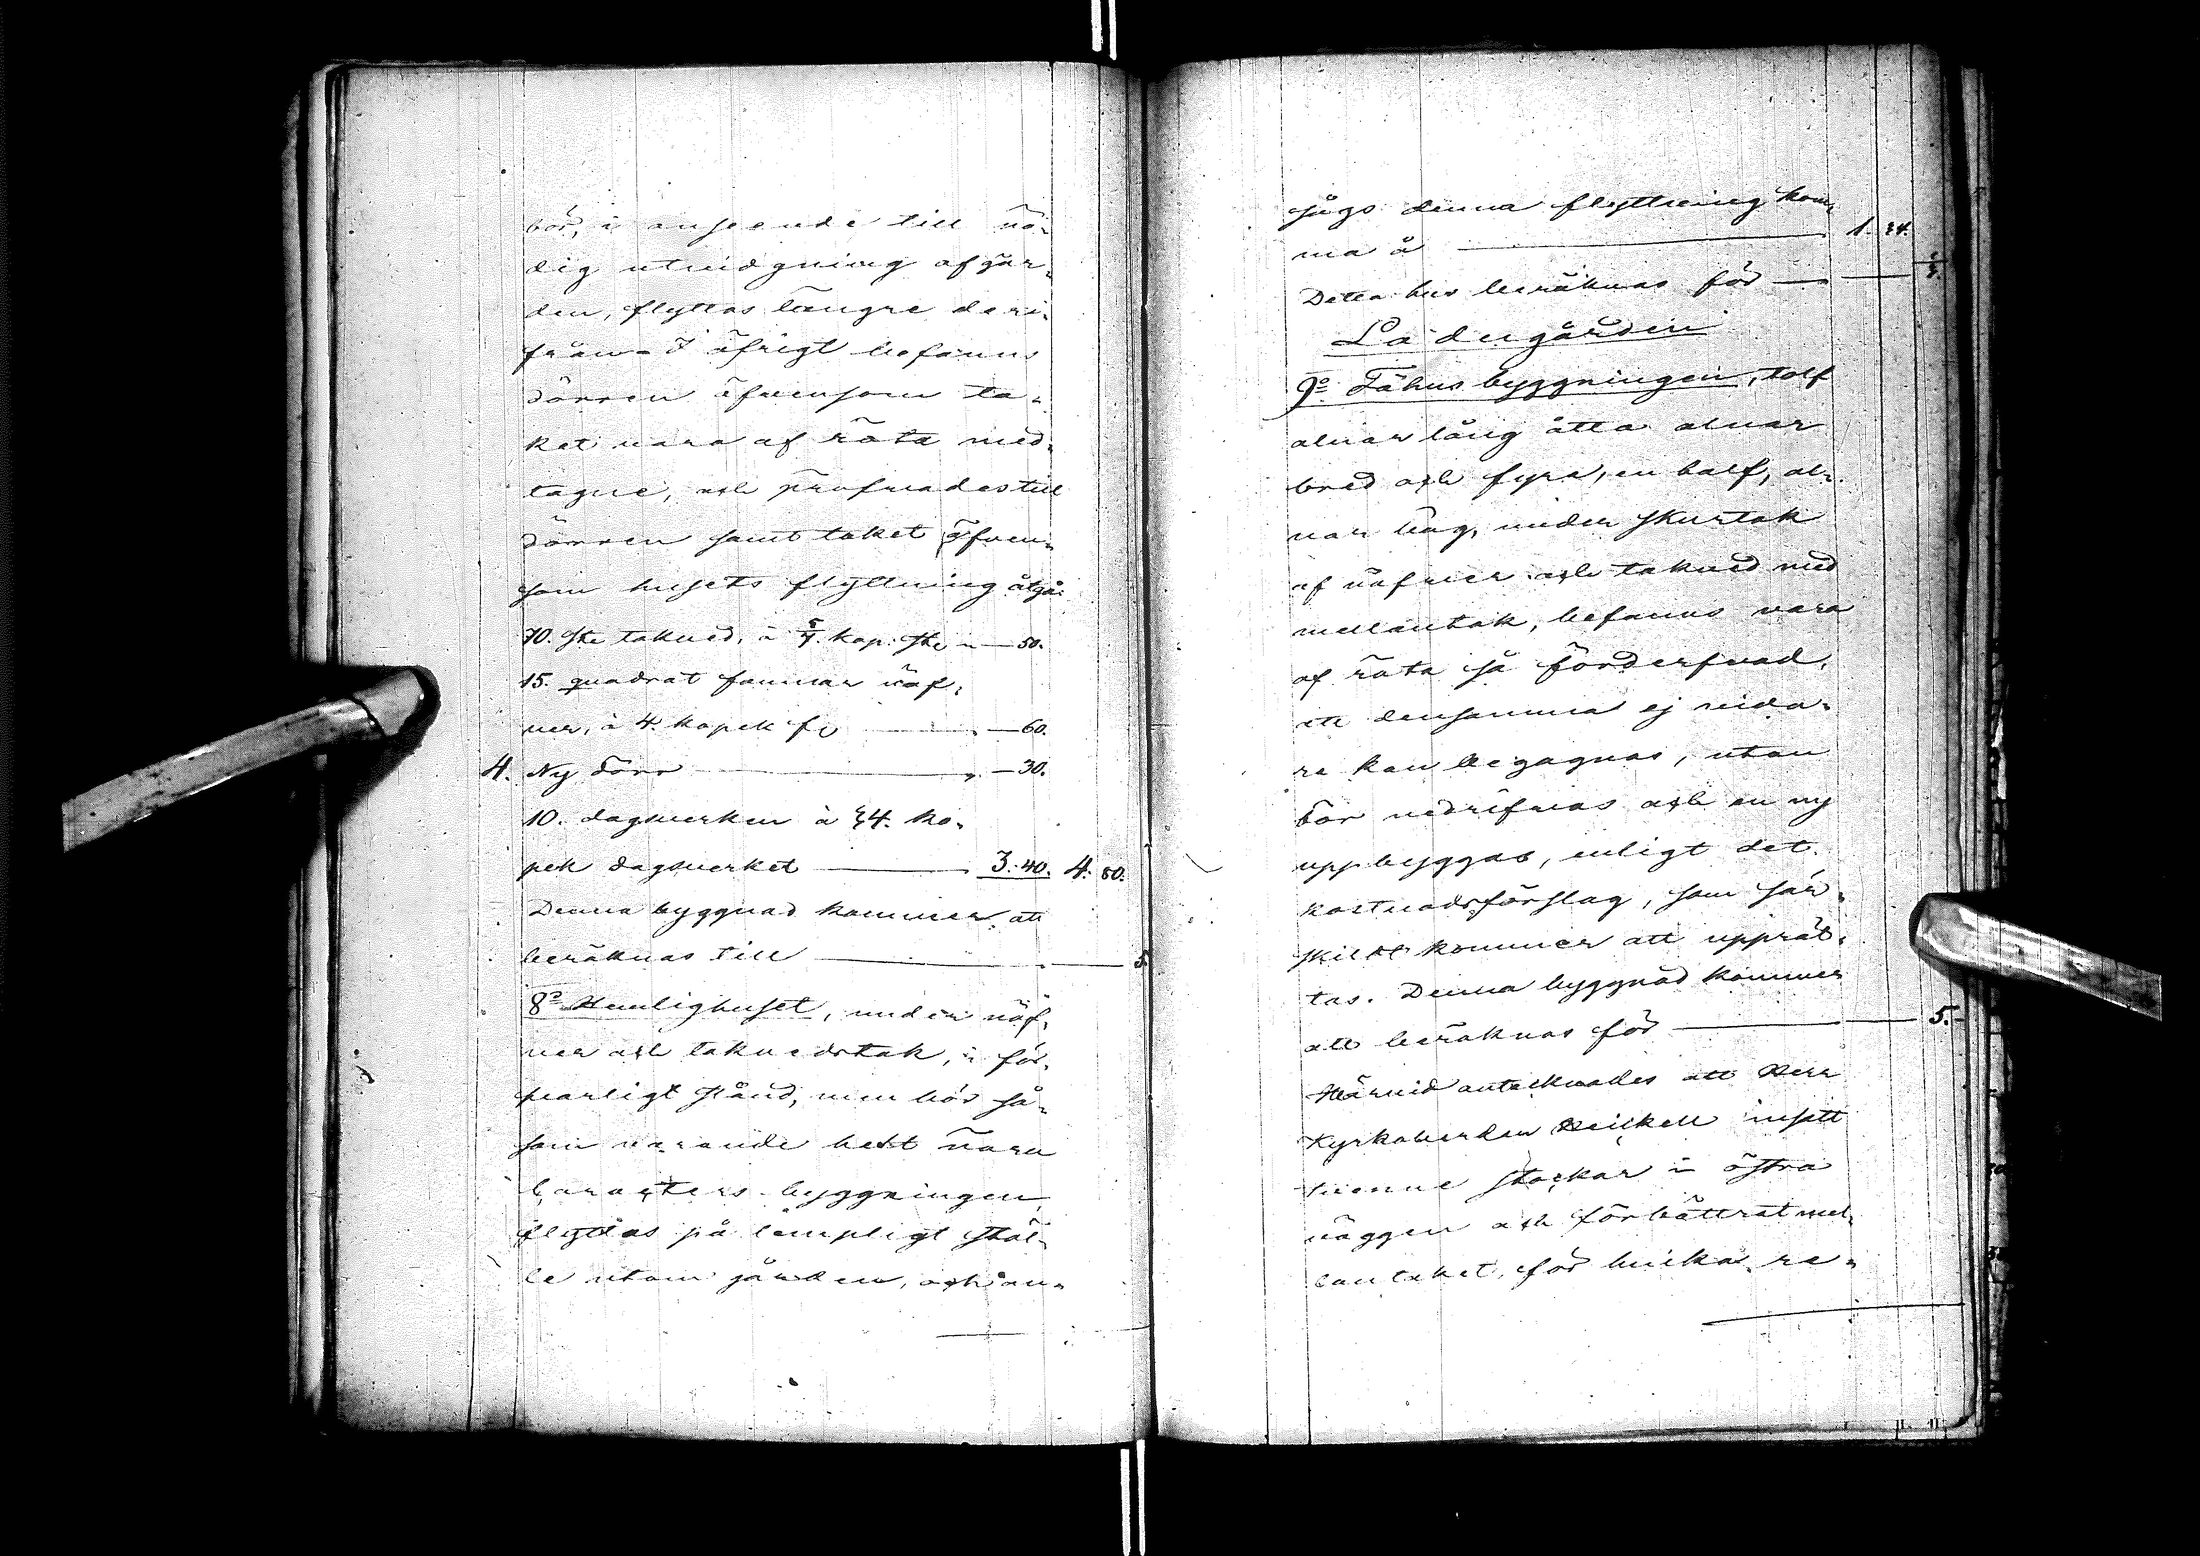 bör, i anseende till nö-
dig utvidgning af går-
den, flyttas längre deri-
från. I öfrigt befanns
dörren äfvensom ta-
ket vara af röta med-
tagne, och pröfvades till
dörren samt taket äfven-
som husets flyttning åtgå:
70. st. takved, à 5/7. kop. st. " — 50.
15. quadrat famnar näf-
ver, à 4. kopek fn " — 60.
4. Ny dörr " — 30.
10. dagsverken à 34. ko-
pek dagsverket — 3. 40. 4. 80.
Denna byggnad kommer att
beräknas till — 5.
8:o Hemlighuset, under näf-
ver och takvedstak, i för-
svarligt stånd, men bör så-
som varande helt nära
karakters byggningen,
flyttas på lämpligt stäl-
le utom gården, och an-
sågs denna flyttning kom-
ma à — 1. 34.
Detta hus beräknas för —
Ladugården
9:o Fähus byggningen, tolf
alnar lång åtta alnar
bred och fyra, en half, al-
nar hög, under skurtak
af näfver och takved med
mellantak, befanns vara
af röta så förderfvad,
att densamma ej vida-
re kan begagnas, utan
bör nedrifvas och en ny
uppbyggas, enligt det
kostnadsförslag, som sär-
skildt kommer att upprät-
tas. Denna byggnad kommer
att beräknas för — 5.
Härvid antecknades att Herr
Kyrkoherden Heikell insatt
tvenne stockar i östra
väggen och förbättrat mel-
lantaket, för hvilka re-